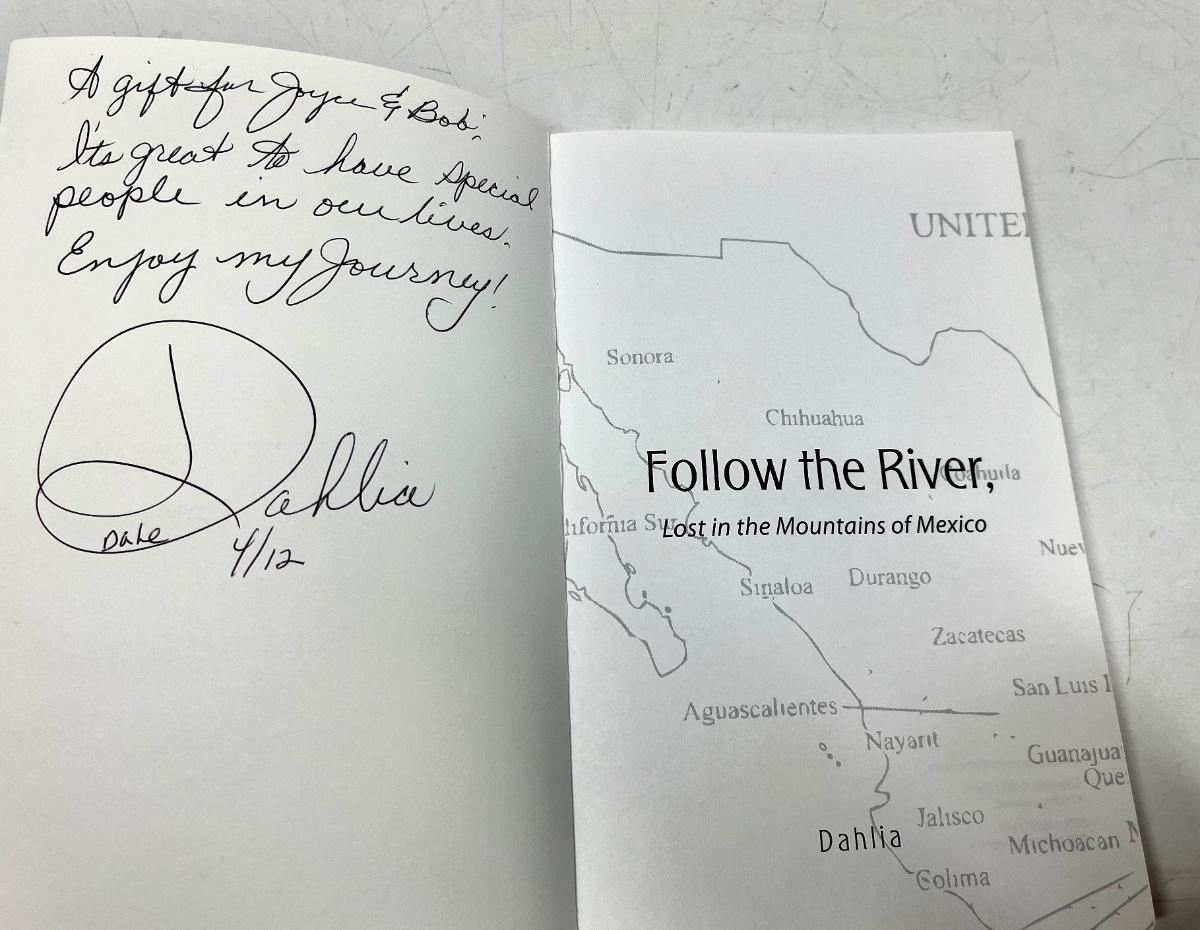 A gift for Joyce & Bob.
It's great to have special
people in our lives.
Enjoy my Journey!
Dahlia
Date
4/12
UNITE
Sonora
Chihuahua
Follow the River,
Coahuila
lifornia Su
Lost in the Mountains of Mexico
Nuev
Sinaloa
Durango
Zacatecas
San Luis
Aguascalientes
Nayarit
Guanajua
Que
Jalisco
Dahlia
Michoacan
Colima